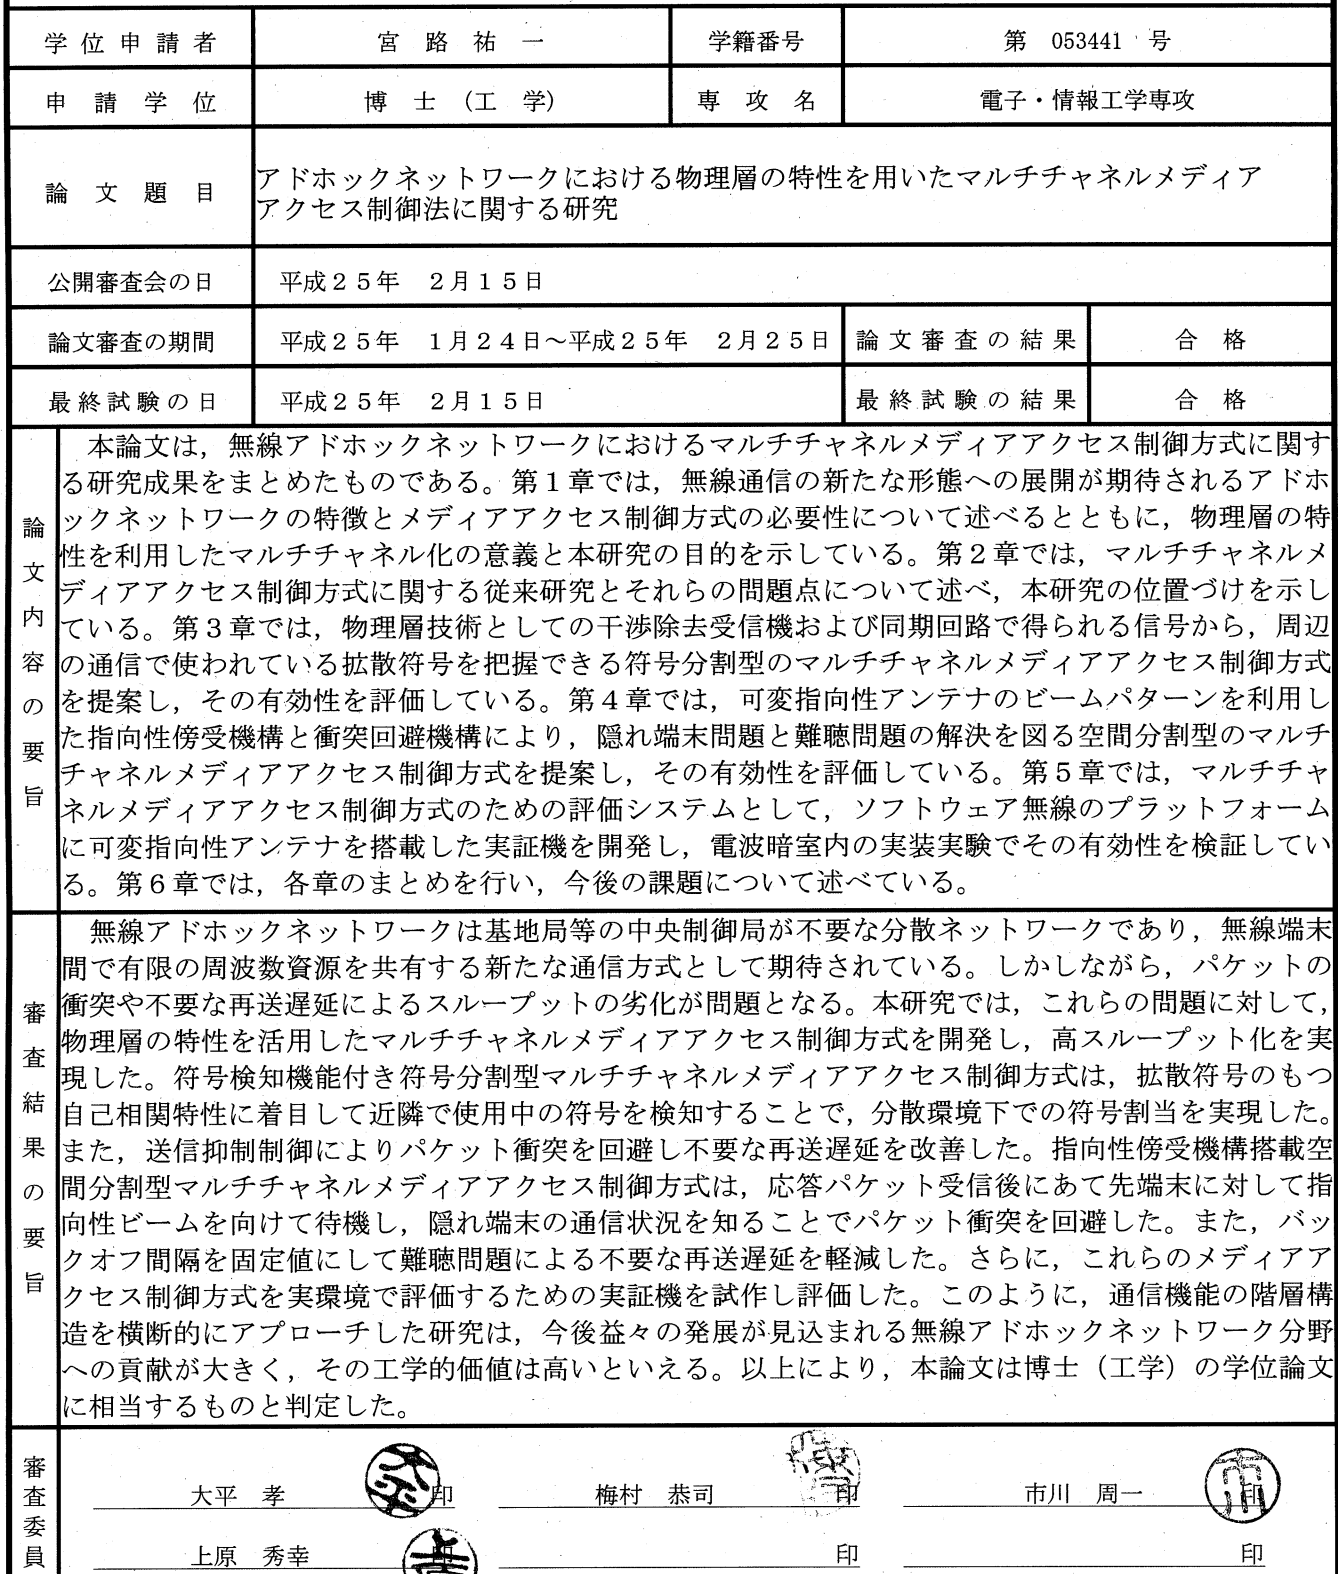 学位申請者 宮路祐一 学籍番号 第 053441 号
申請学位 博士(工学) 専攻名 電子・情報工学専攻
論文題目 アドホックネットワークにおける物理層の特性を用いたマルチチャネルメディア
アクセス制御法に関する研究
公開審査会の日 平成25年 2月15日
論文審査の期間 平成25年 1月24日～平成25年 2月25日 論文審査の結果 合格
最終試験の日 平成25年 2月15日 最終試験の結果 合格
論文内容の要旨
本論文は，無線アドホックネットワークにおけるマルチチャネルメディアアクセス制御方式に関す
る研究成果をまとめたものである。第1章では，無線通信の新たな形態への展開が期待されるアドホ
ックネットワークの特徴とメディアアクセス制御方式の必要性について述べるとともに，物理層の特
性を利用したマルチチャネル化の意義と本研究の目的を示している。第2章では，マルチチャネルメ
ディアアクセス制御方式に関する従来研究とそれらの問題点について述べ，本研究の位置づけを示し
ている。第3章では，物理層技術としての干渉除去受信機および同期回路で得られる信号から，周辺
の通信で使われている拡散符号を把握できる符号分割型のマルチチャネルメディアアクセス制御方式
を提案し，その有効性を評価している。第4章では，可変指向性アンテナのビームパターンを利用し
た指向性傍受機構と衝突回避機構により，隠れ端末問題と難聴問題の解決を図る空間分割型のマルチ
チャネルメディアアクセス制御方式を提案し，その有効性を評価している。第5章では，マルチチャ
ネルメディアアクセス制御方式のための評価システムとして，ソフトウェア無線のプラットフォーム
に可変指向性アンテナを搭載した実証機を開発し，電波暗室内の実装実験でその有効性を検証してい
る。第6章では，各章のまとめを行い，今後の課題について述べている。
審査結果の要旨
無線アドホックネットワークは基地局等の中央制御局が不要な分散ネットワークであり，無線端末
間で有限の周波数資源を共有する新たな通信方式として期待されている。しかしながら，パケットの
衝突や不要な再送遅延によるスループットの劣化が問題となる。本研究では，これらの問題に対して，
物理層の特性を活用したマルチチャネルメディアアクセス制御方式を開発し，高スループット化を実
現した。符号検知機能付き符号分割型マルチチャネルメディアアクセス制御方式は，拡散符号のもつ
自己相関特性に着目して近隣で使用中の符号を検知することで，分散環境下での符号割当を実現した。
また，送信抑制制御によりパケット衝突を回避し不要な再送遅延を改善した。指向性傍受機構搭載空
間分割型マルチチャネルメディアアクセス制御方式は，応答パケット受信後にあて先端末に対して指
向性ビームを向けて待機し，隠れ端末の通信状況を知ることでパケット衝突を回避した。また，バッ
クオフ間隔を固定値にして難聴問題による不要な再送遅延を軽減した。さらに，これらのメディアア
クセス制御方式を実環境で評価するための実証機を試作し評価した。このように，通信機能の階層構
造を横断的にアプローチした研究は，今後益々の発展が見込まれる無線アドホックネットワーク分野
への貢献が大きく，その工学的価値は高いといえる。以上により，本論文は博士（工学）の学位論文
に相当するものと判定した。
審査委員
大平 孝 印 梅村 恭司 印 市川 周一 印
上原 秀幸 印 印 印